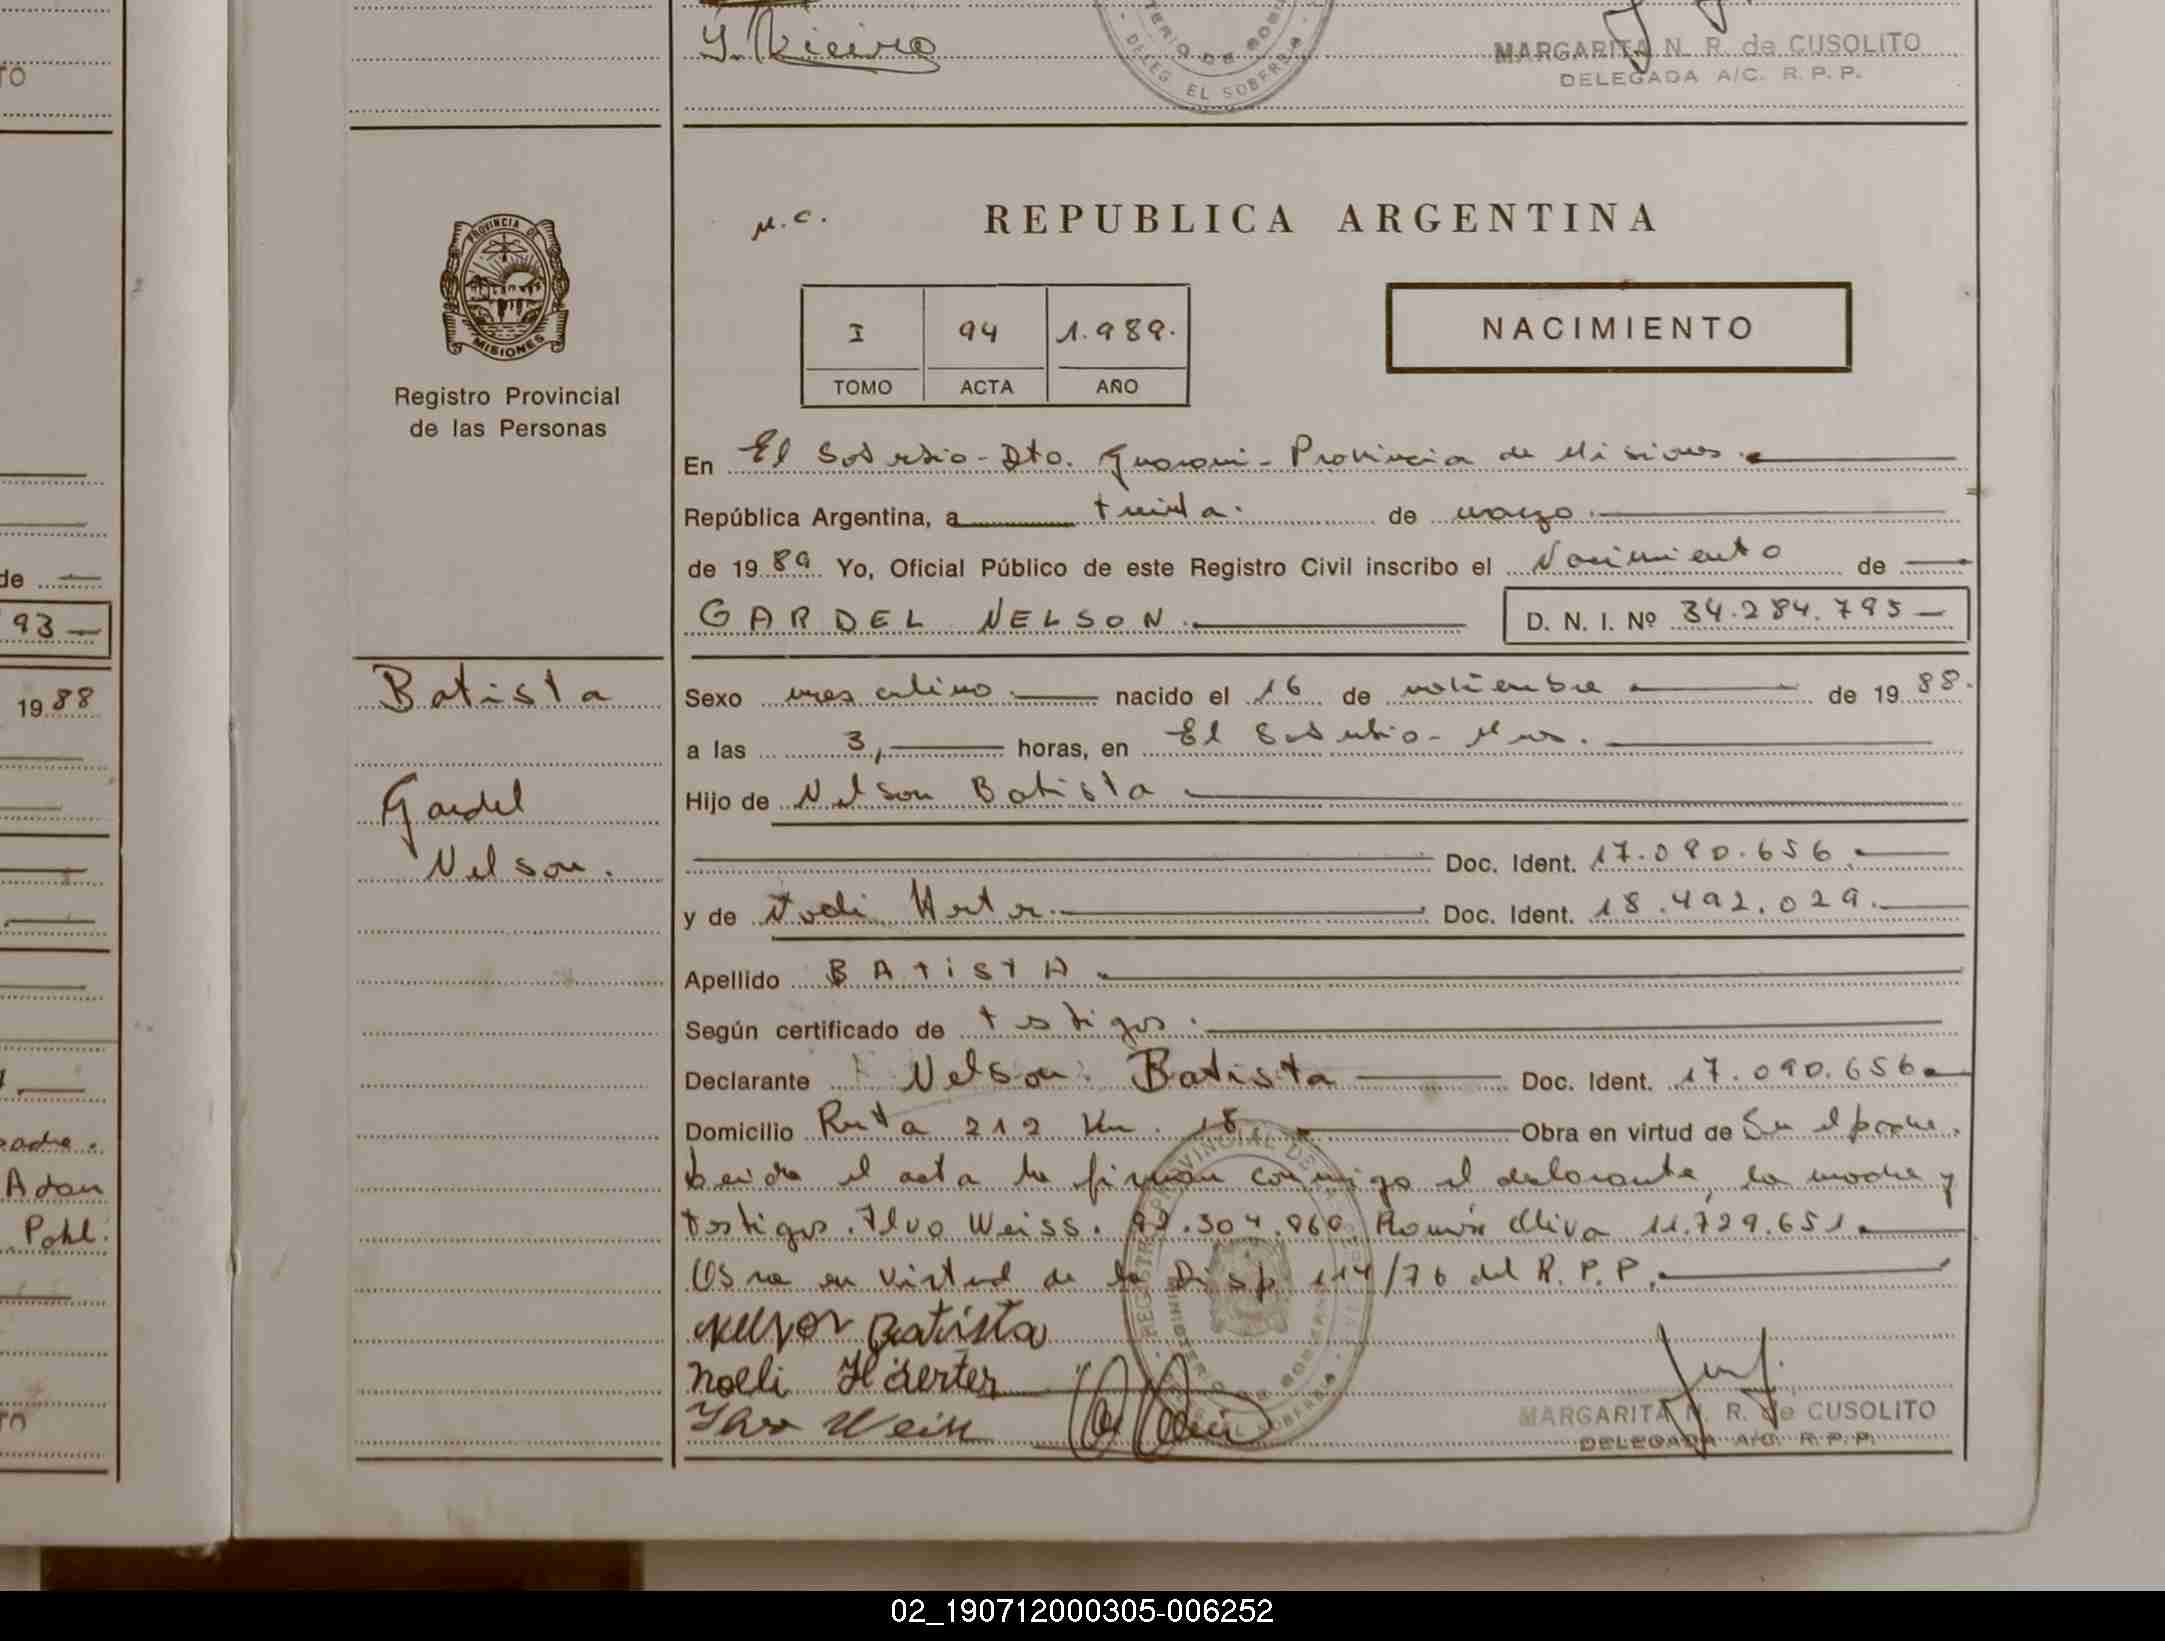 TO
J. Rieiro
DELEG EL SOBERBIO
MARGARITA N. R. de CUSOLITO
DELEGADA A/C. R. P. P.
PROVINCIA DE
MISIONES
Registro Provincial
de las Personas
REPUBLICA ARGENTINA
I 94 1.989.
TOMO ACTA AÑO
NACIMIENTO
En El Soberbio - Dto. Guarani - Provincia de Misiones.
República Argentina, a treinta. de marzo.
de 1989 Yo, Oficial Público de este Registro Civil inscribo el Nacimiento de
GARDEL NELSON. D. N. I. Nº 34.284.795
de
93
1988
Batista
Gardel
Nelson.
Sexo masculino. nacido el 16 de noviembre de 1988.
a las 3, horas, en El Soberbio - Mnes.
Hijo de Nelson Batista
Doc. Ident. 17.090.656.
y de Noeli Herter. Doc. Ident. 18.492.029.
Apellido BATISTA.
Según certificado de testigos.
Declarante Nelson Batista Doc. Ident. 17.090.656
Domicilio Ruta 212 Km. 18 Obra en virtud de Ser el padre.
Leida el acta la firman conmigo el declarante, la madre y
testigos. Ilvo Weiss. 92.304.960 Ramón Oliva 11.729.651.
Obra en virtud de la Disp. 114/76 del R. P. P.
Nelson Batista
Noeli Haerter
Ilvo Weiss
MARGARITA N. R. de CUSOLITO
DELEGADA A/C. R. P. P.
padre.
Adan
Pohl.
02_190712000305-006252